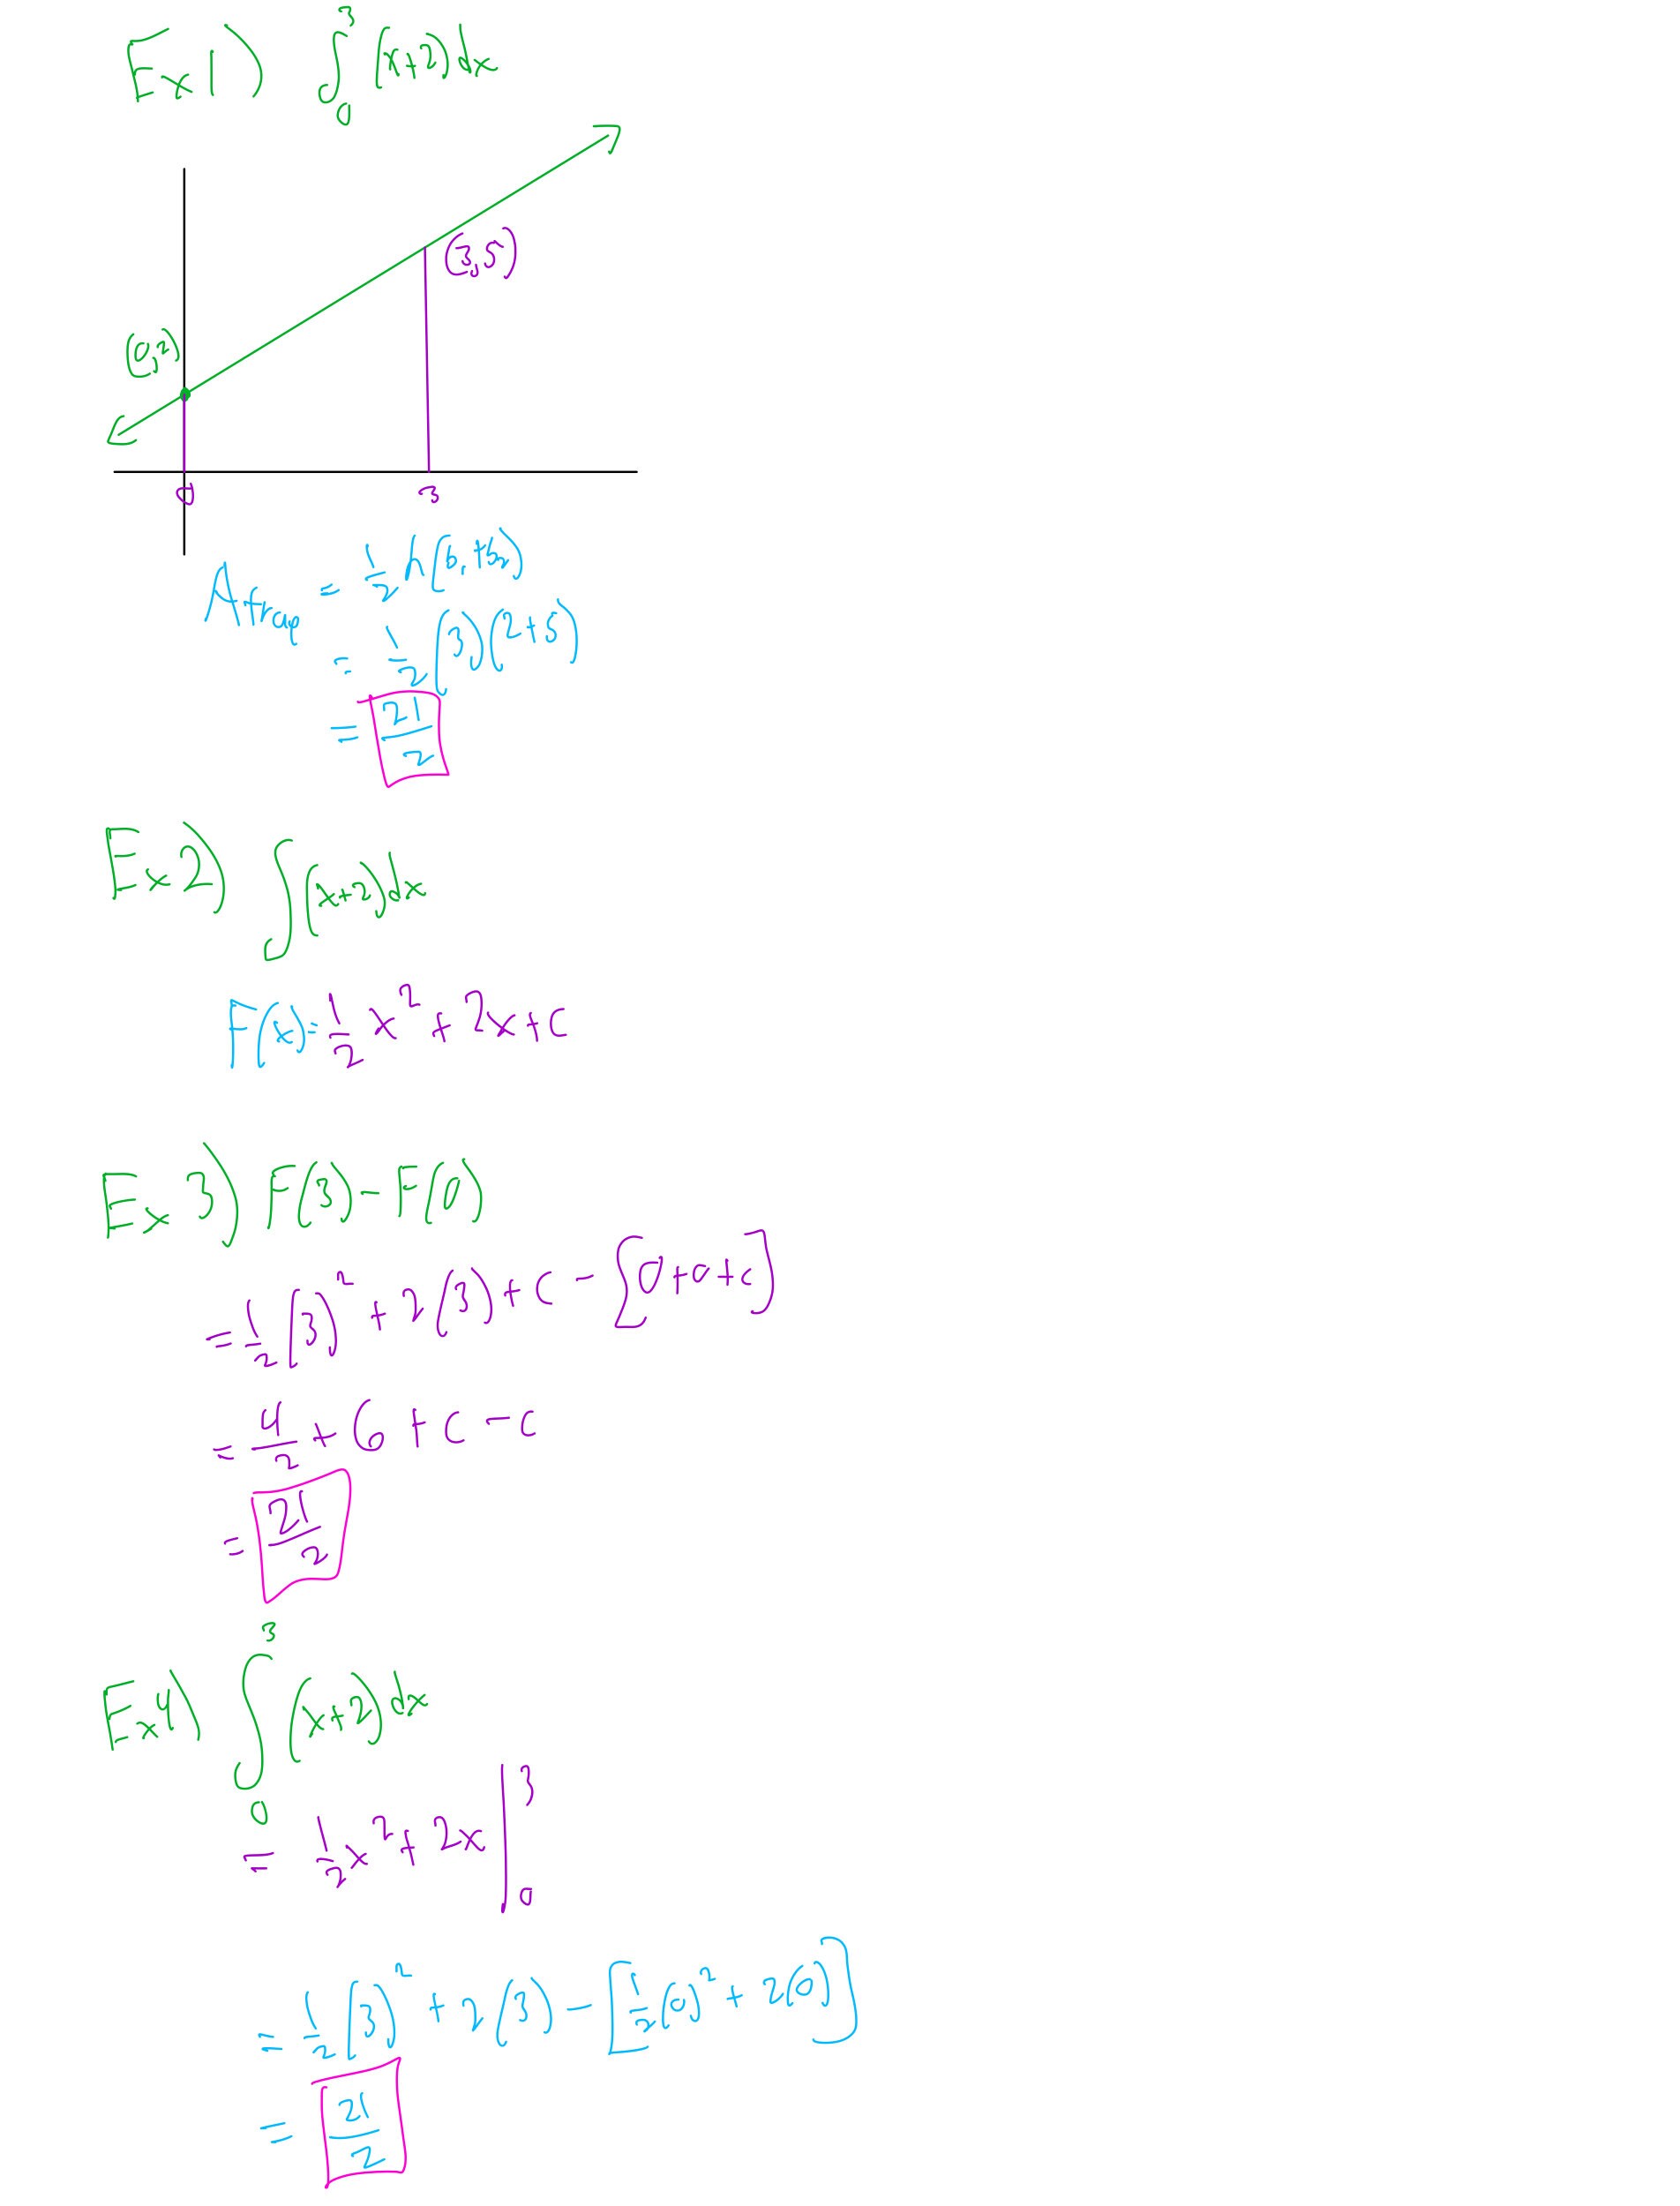 Ex 1) ∫₀³ (x+2)dx
(3,5)
(0,2)
0 3
Atrap = 1/2 h(b₁+b₂)
= 1/2 (3)(2+5)
= 21/2
Ex 2) ∫(x+2)dx
F(x)= 1/2 x² + 2x + c
Ex 3) F(3) - F(0)
= 1/2 (3)² + 2(3) + C - [0+0+c]
= 9/2 + 6 + C - C
= 21/2
Ex 4) ∫₀³ (x+2)dx
= 1/2 x² + 2x |₀³
= 1/2 (3)² + 2(3) - [1/2 (0)² + 2(0)]
= 21/2